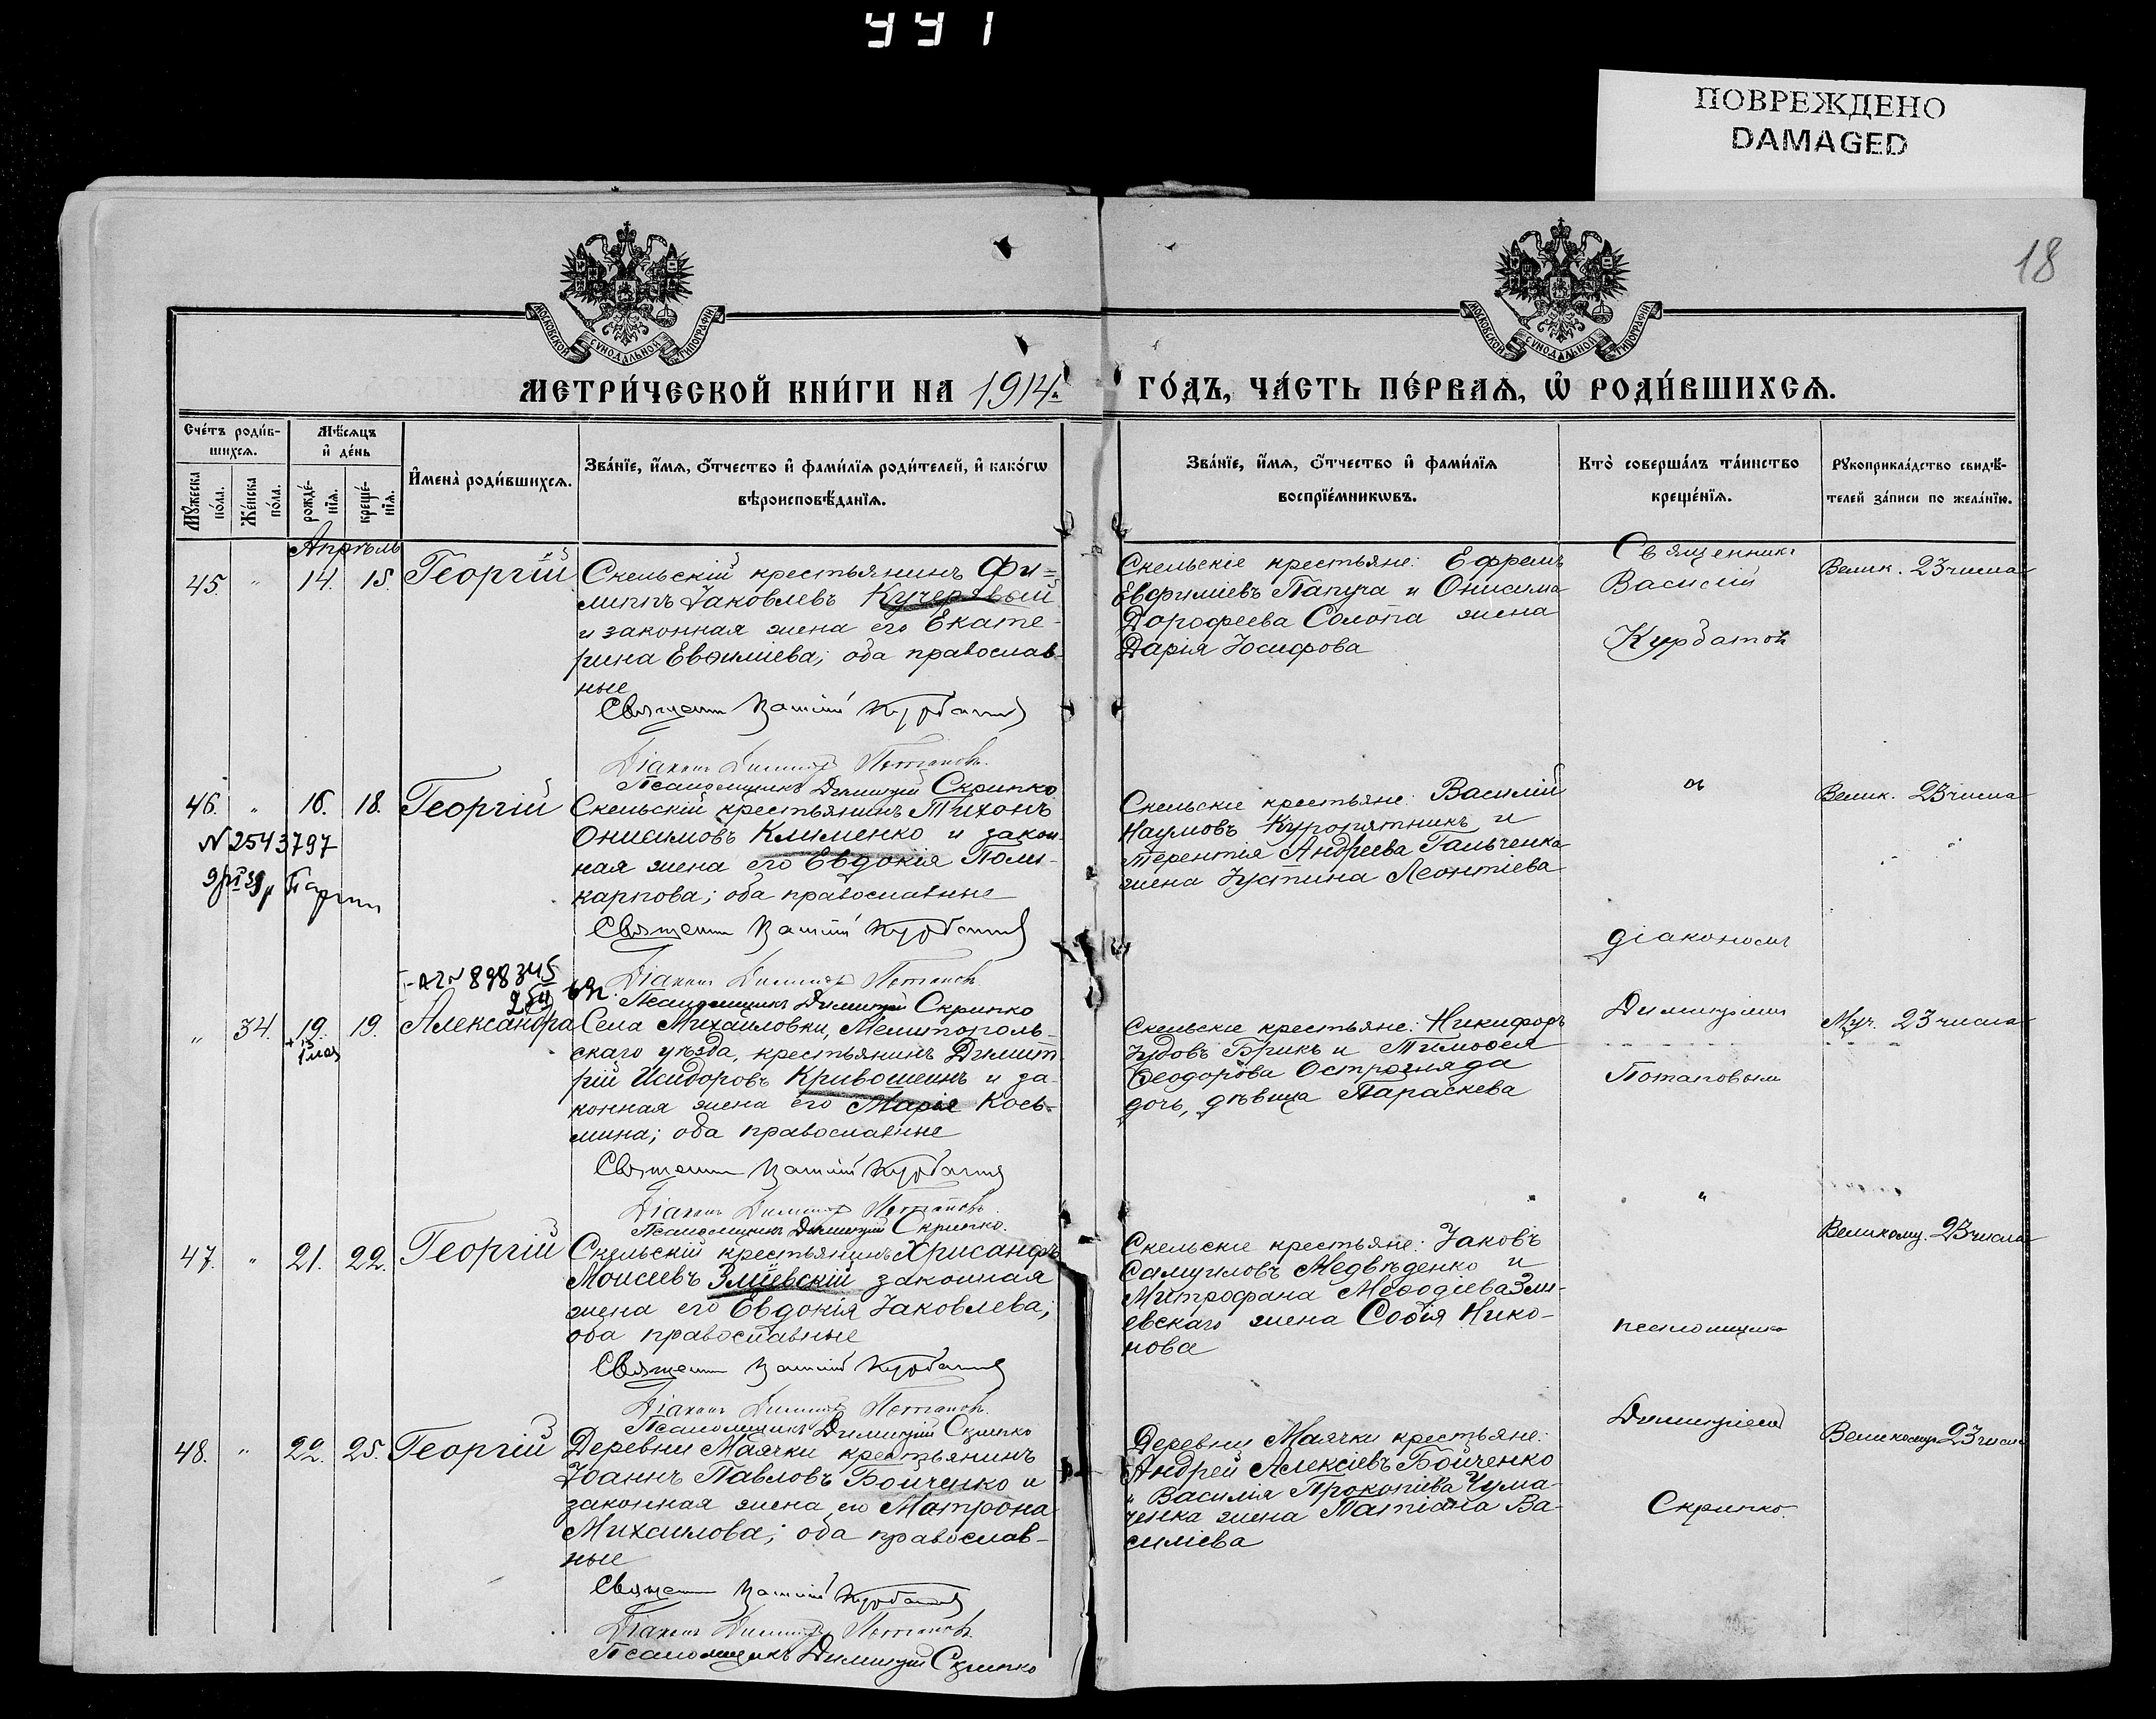 991
ПОВРЕЖДЕНО
DAMAGED
18
МОСКОВСКОЙ СѴНОДАЛЬНОЙ ТИПОГРАФІИ
МОСКОВСКОЙ СѴНОДАЛЬНОЙ ТИПОГРАФІИ
МЕТРИ́ЧЕСКОЙ КНИ́ГИ НА 1914 ГО́ДЪ, ЧА́СТЬ ПЕ́РВАѦ, Ѽ РОДИ́ВШИХСѦ.
Сче́тъ роди́вшихсѧ.
Мѣ́сѧцъ и҆ де́нь
Мꙋ́жеска по́ла.
Же́нска по́ла.
рожде́нїѧ.
креще́нїѧ.
И҆мена̀ роди́вшихсѧ.
Зва́нїе, и҆́мѧ, ѻ҆́тчество и҆ фами́лїѧ роди́телей, и҆ како́гѡ
вѣроисповѣ́данїѧ.
Зва́нїе, и҆́мѧ, ѻ҆́тчество и҆ фами́лїѧ
воспрїе́мникѡвъ.
Кто̀ соверша́лъ та́инство
креще́нїѧ.
Рꙋкоприкла́дство свидѣ́телей за́писи по жела́нїю.
Апрѣль
45. " 14. 15. Георгій
Скельскій крестьянинъ Фи=
липпъ Іаковлевъ Кучерявый
и законная жена его Екате-
рина Евѳиміева; оба православ-
ные
Священникъ Василій Курбатовъ
Діаконъ Димитрій Потаповъ.
Псаломщикъ Димитрій Скрипко
Скельскіе крестьяне: Ефремъ
Евфиміевъ Папуча и Онисима
Дорофеева Солопа жена
Дарія Іосифова
Священникъ
Василій
Курбатовъ
Велик. 23 числа
46. " 16. 18. Георгій
N 2543797
Скельскій крестьянинъ Тихонъ
Онисимовъ Клименко и закон-
ная жена его Евдокія Поли-
карпова; оба православные
Священникъ Василій Курбатовъ
Діаконъ Димитрій Потаповъ
Псаломщикъ Димитрій Скрипко
Скельскіе крестьяне: Василій
Наумовъ Куропятникъ и
Терентія Андреева Гальченка
жена Іустина Леонтіева
Велик. 23 числа
898345
" 34. 19. 19. Александра
Села Михайловки, Мелитополь-
скаго уѣзда, крестьянинъ Димит-
рій Исидоровъ Кривошеинъ и за-
конная жена его Марія Кось-
мина; оба православные
Священникъ Василій Курбатовъ
Діаконъ Димитрій Потаповъ.
Псаломщикъ Димитрій Скрипко.
Скельскіе крестьяне: Никифоръ
Іудовъ Брикъ и Тимоѳея
Ѳеодорова Остроглядa
дочь, дѣвица Параскева
діакономъ
Димитріемъ
Потаповымъ
Муч. 23 числа
47. " 21. 22. Георгій
Скельскій крестьянинъ Хрисанфъ
Моисеевъ Зміевскій законная
жена его Евдокія Іаковлева;
оба православные
Священникъ Василій Курбатовъ
Діаконъ Димитрій Потаповъ.
Псаломщикъ Димитрій Скрипко
Скельскіе крестьяне: Іаковъ
Самуиловъ Медвѣденко и
Митрофана Меѳодіева Зми-
евскаго жена Софія Нико-
нова
"
псаломщикъ
Великому. 23 числа
48. " 22. 25. Георгій
Деревни Маячки крестьянинъ
Іоаннъ Павловъ Бойченко и
законная жена его Матрона
Михаилова; оба православ-
ные
Священникъ Василій Курбатовъ
Діаконъ Димитрій Потаповъ.
Псаломщикъ Димитрій Скрипко
Деревни Маячки крестьяне:
Андрей Алексіевъ Бойченко
и Василія Прокопіева Чума-
ченка жена Татіана Ва-
силіева
Димитріемъ
Скрипко.
Великомуч. 23 числа